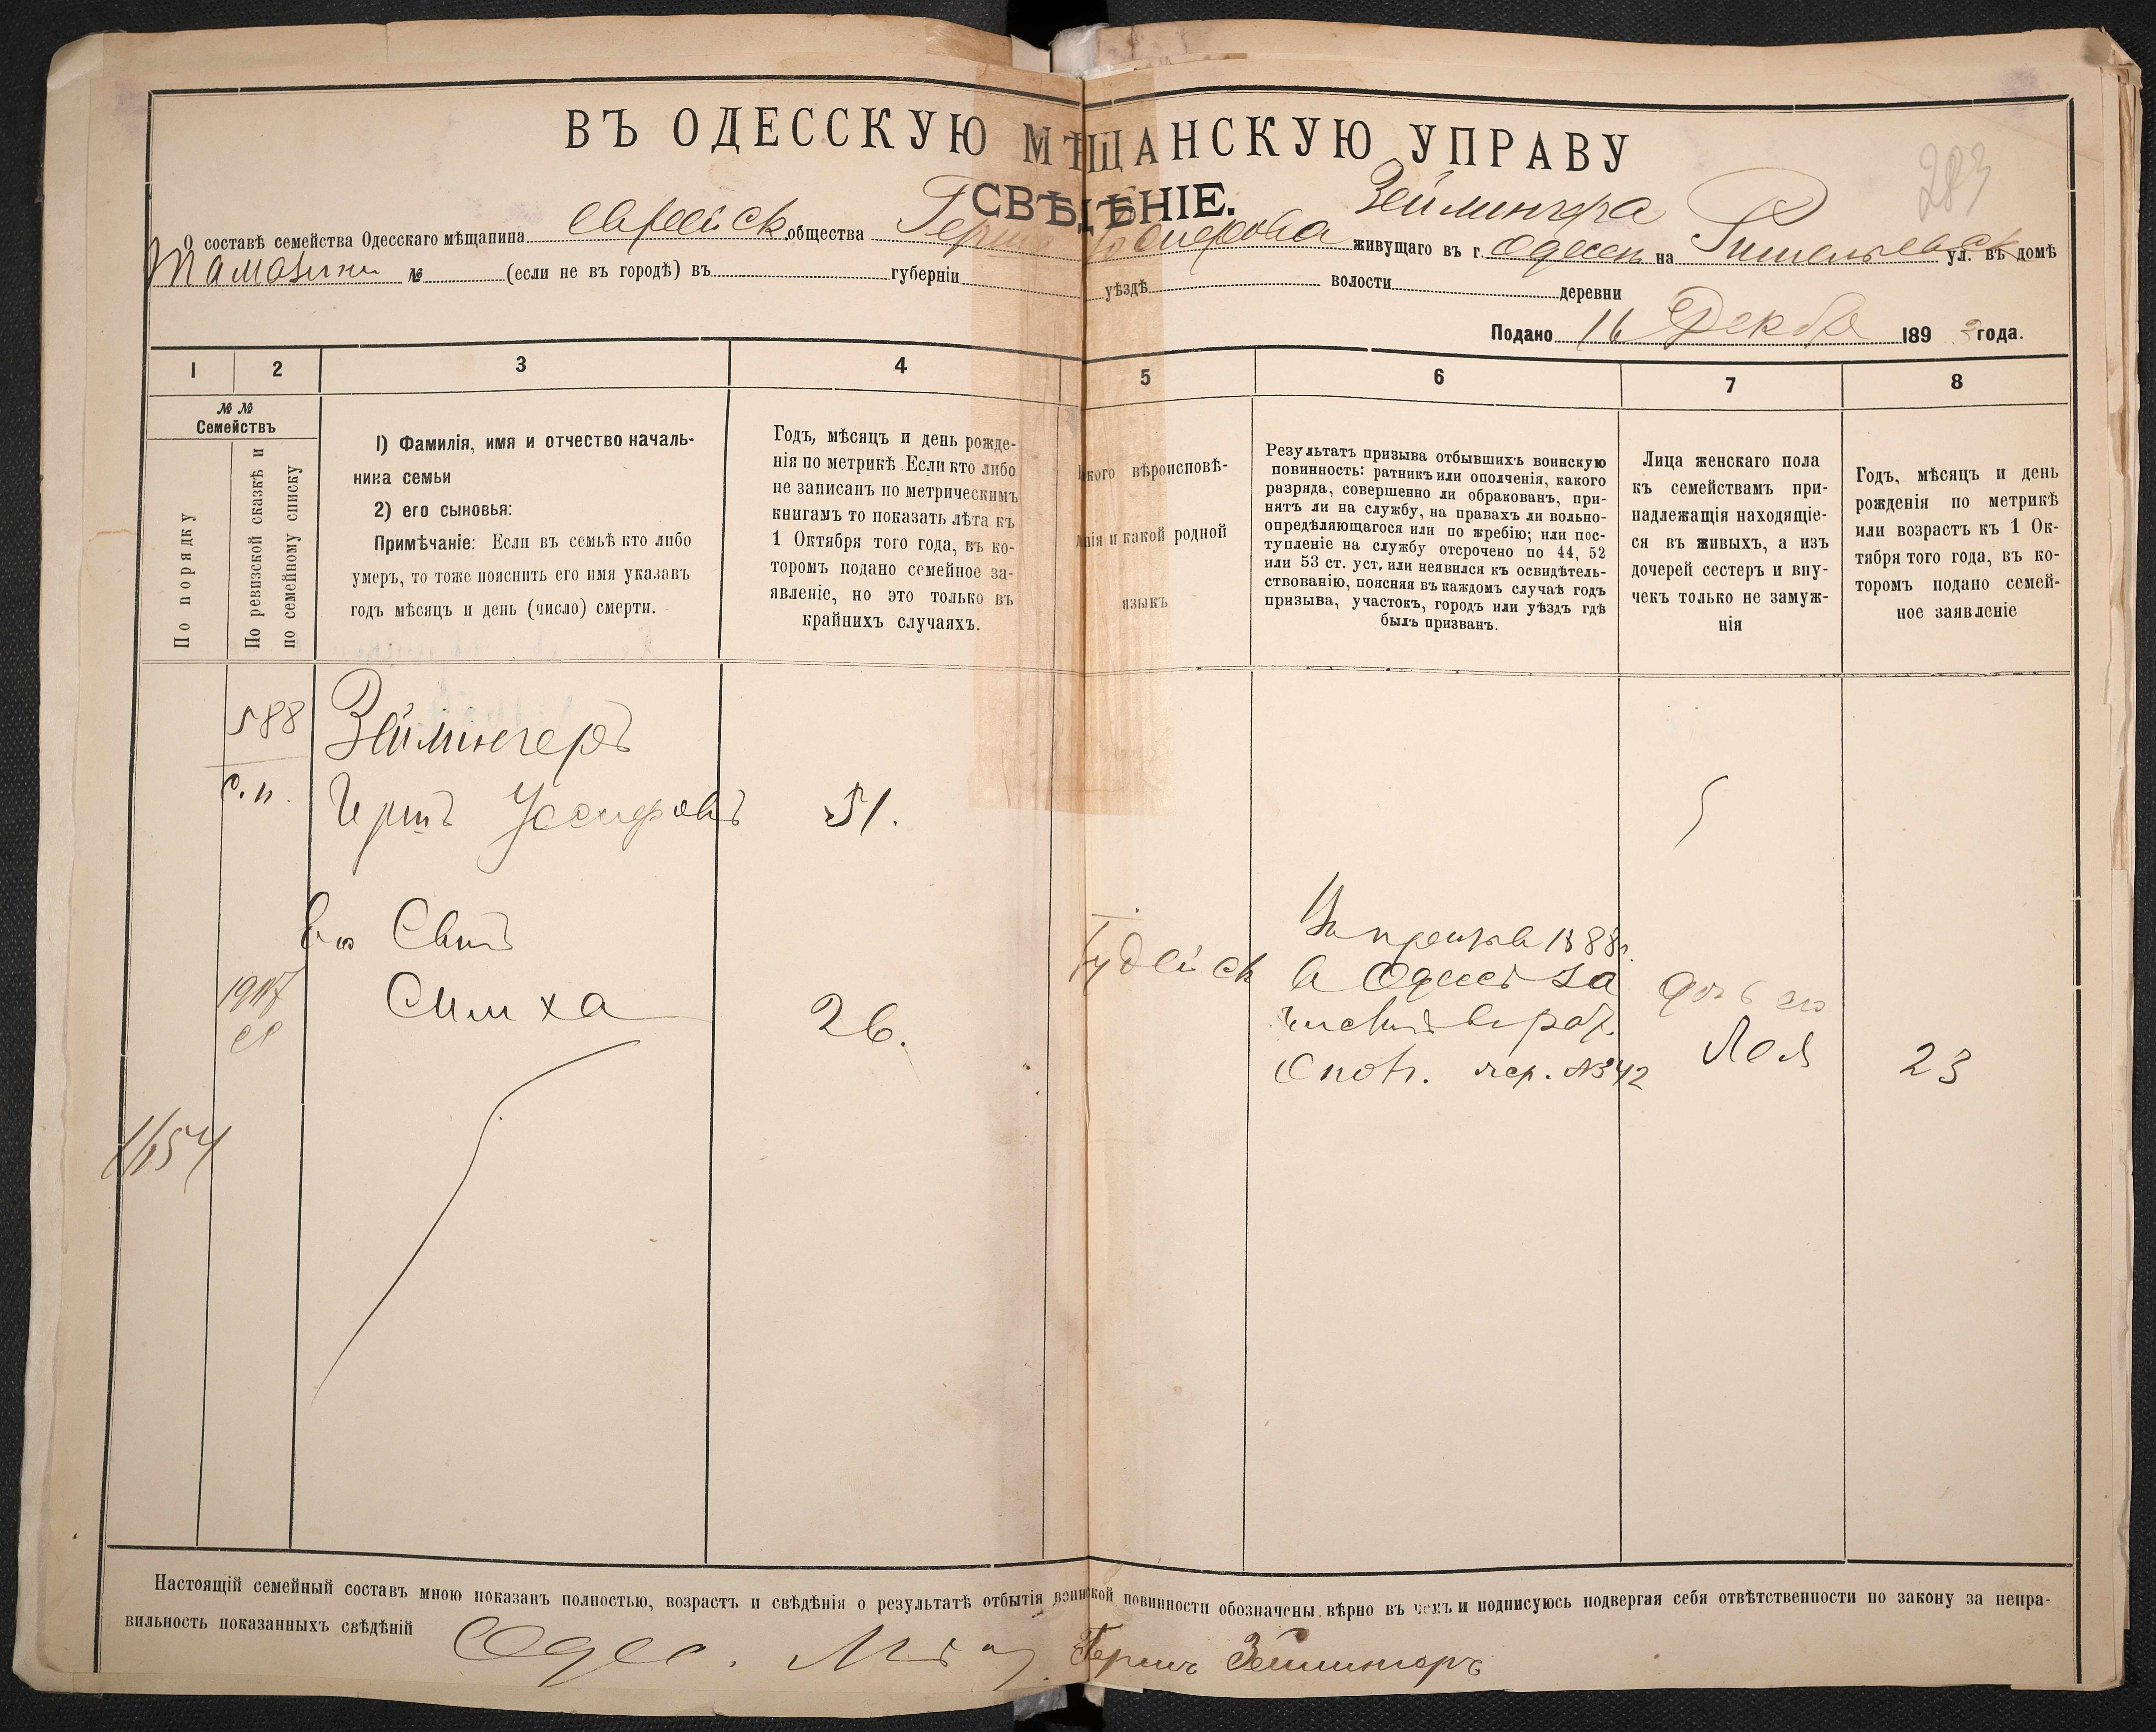 ВЪ ОДЕССКУЮ МѢЩАНСКУЮ УПРАВУ
283
СВѢДѢНІЕ.
О составѣ семейства Одесскаго мѣщанина Еврейск общества Герша Іосифова Зейлингера живущаго въ г. Одессѣ на Ришельевск ул. въ домѣ
№ (если не въ городѣ) въ губерніи уѣздѣ волости деревни
Подано 16 Декбр 1893 года.
1 2 3 4 5 6 7 8
№ №
Семействъ
По порядку
По ревизской сказкѣ и
по семейному списку
1) Фамилія, имя и отчество началь-
ника семьи
2) его сыновья:
Примѣчаніе: Если въ семьѣ кто либо
умеръ, то тоже пояснить его имя указавъ
годъ мѣсяцъ и день (число) смерти.
Годъ, мѣсяцъ и день рожде-
нія по метрикѣ. Если кто либо
не записанъ по метрическимъ
книгамъ то показать лѣта къ
1 Октября того года, въ ко-
торомъ подано семейное за-
явленіе, но это только въ
крайнихъ случаяхъ.
вѣроисповѣ-
нія и какой родной
языкъ
Результатъ призыва отбывшихъ воинскую
повинность: ратникъ или ополченія, какого
разряда, совершенно ли обракованъ, при-
нятъ ли на службу, на правахъ ли вольно-
опредѣляющагося или по жребію; или пос-
тупленіе на службу отсрочено по 44, 52
или 53 ст. уст, или неявился къ освидѣтель-
ствованію, поясняя въ каждомъ случаѣ годъ
призыва, участокъ, городъ или уѣздъ гдѣ
былъ призванъ.
Лица женскаго пола
къ семействамъ при-
надлежащія находящіе-
ся въ живыхъ, а изъ
дочерей сестеръ и вну-
чекъ только не замуж-
нія
Годъ, мѣсяцъ и день
рожденія по метрикѣ
или возрастъ къ 1 Ок-
тября того года, въ ко-
торомъ подано семей-
ное заявленіе
588
с. п.
Зейлингеръ
Гершъ Іосифовъ
51.
Его Сынъ
Симха
26.
Іудейск
призыва 1888 г.
в Одессѣ за
жер. № 342
дочь его
Лея
23
1654
Настоящій семейный составъ мною показанъ полностью, возрастъ и свѣдѣнія о результатѣ отбытія воинской повинности обозначены вѣрно въ чемъ и подписуюсь подвергая себя отвѣтственности по закону за непра-
вильность показанныхъ свѣдѣній
Одес. Мѣщ. Гершъ Зейлингеръ